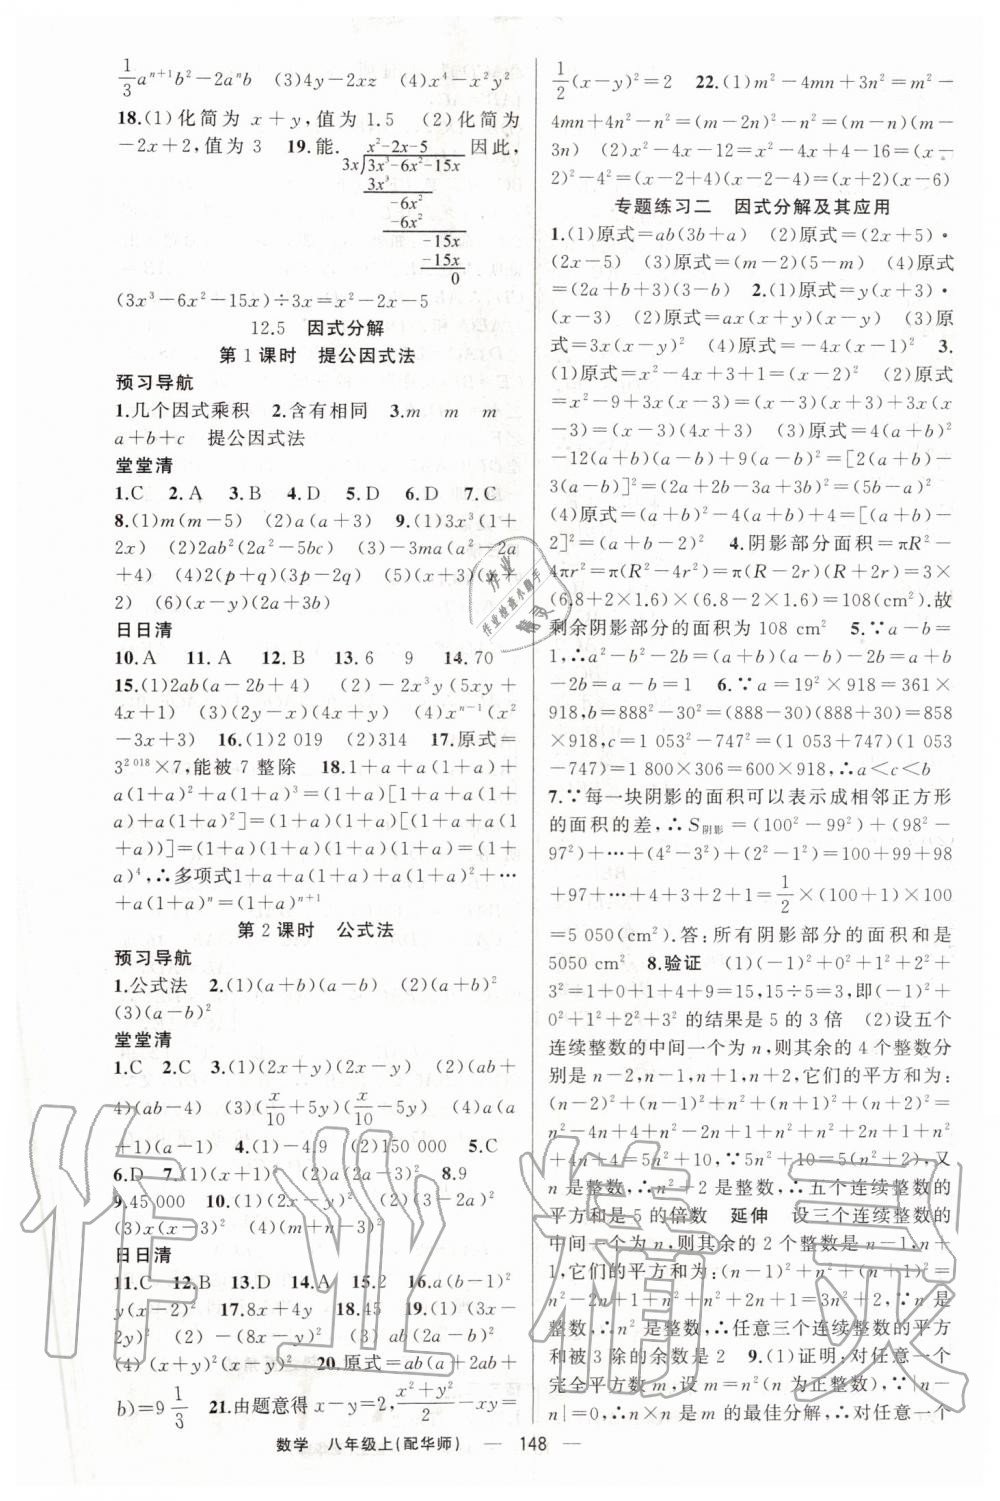 1/3 a^{n+1}b²－2a^n b　(3)4y－2xz　(4)x⁴－x²y²
18.(1)化简为 x＋y,值为 1.5　(2)化简为
－2x＋2,值为 3　19.能.　x²－2x－5　因此,
3x√3x³－6x²－15x
3x³
－6x²
－6x²
－15x
－15x
0
(3x³－6x²－15x)÷3x＝x²－2x－5
12.5　因式分解
第 1 课时　提公因式法
预习导航
1.几个因式乘积　2.含有相同　3.m　m　m
a＋b＋c　提公因式法
堂堂清
1.C　2.A　3.B　4.D　5.D　6.D　7.C
8.(1)m(m－5)　(2)a(a＋3)　9.(1)3x³(1＋
2x)　(2)2ab²(2a²－5bc)　(3)－3ma(a²－2a
＋4)　(4)2(p＋q)(3p－2q)
2)　(6)(x－y)(2a＋3b)
日日清
10.A　11.A　12.B　13.6　9　14.70
15.(1)2ab(a－2b＋4)　(2)－2x³y(5xy＋
4x＋1)　(3)(2y－x)(4x＋y)　(4)x^{n－1}(x²
－3x＋3)　16.(1)2 019　(2)314　17.原式＝
3^{2 018}×7,能被 7 整除　18.1＋a＋a(1＋a)＋
a(1＋a)²＋a(1＋a)³＝(1＋a)[1＋a＋a(1＋
a)＋a(1＋a)²]＝(1＋a)(1＋a)[(1＋a＋a(1
＋a))]＝(1＋a)(1＋a)(1＋a)(1＋a)＝(1＋
a)⁴,∴多项式1＋a＋a(1＋a)＋a(1＋a)²＋…
＋a(1＋a)^n＝(1＋a)^{n＋1}
第 2 课时　公式法
预习导航
1.公式法　2.(1)(a＋b)(a－b)　(2)(a＋b)²
(3)(a－b)²
堂堂清
1.C　2.C　3.(1)(2x＋y)(2x－y)　(2)(ab＋
4)(ab－4)　(3)(x/10＋5y)(x/10－5y)　(4)a(a
＋1)(a－1)　4.(1)－4.9　(2)150 000　5.C
6.D　7.(1)(x＋1)²　(2)(a－2b)²　8.9
9.45 000　10.(1)(2x－y)²
(3)x(x－3)²　(4)(m＋n－3)²
日日清
11.C　12.B　13.D　14.A　15.2　16.a(b－1)²
y(x－2)²　17.8x＋4y　18.45　19.(1)(3x－
2y)²　(2)－(8x－y)²　(3)ab(2a－b)²
(4)(x＋y)²(x－y)²　20.原式＝ab(a＋2ab＋
b)＝9 1/3　21.由题意得 x－y＝2, (x²＋y²)/2 －xy＝
1/2(x－y)²＝2　22.(1)m²－4mn＋3n²＝m²－
4mn＋4n²－n²＝(m－2n)²－n²＝(m－n)(m－
3n)　(2)x²－4x－12＝x²－4x＋4－16＝(x－
2)²－4²＝(x－2＋4)(x－2－4)＝(x＋2)(x－6)
专题练习二　因式分解及其应用
1.(1)原式＝ab(3b＋a)　(2)原式＝(2x＋5)·
(2x－5)　(3)原式＝(m－2)(5－m)　(4)原式
＝(2a＋b)(3－b)　2.(1)原式＝y(x＋3)·
(x－3)　(2)原式＝ax(x＋y)(x－y)　(3)原式
＝3x(x－y)²　(4)原式＝－4x(x－1)²　3.
(1)原式＝x²－4x＋3＋1＝(x－2)²　(2)原式
＝x²－9＋3x(x－3)＝(x－3)(x＋3＋3x)＝(x
－3)(4x＋3)　(3)原式＝4(a＋b)²
－12(a＋b)(a－b)＋9(a－b)²＝[2(a＋b)－
3(a－b)]²＝(2a＋2b－3a＋3b)²＝(5b－a)²
(4)原式＝(a＋b)²－4(a＋b)＋4＝[(a＋b)－
2]²＝(a＋b－2)²　4.阴影部分面积＝πR²－
4πr²＝π(R²－4r²)＝π(R－2r)(R＋2r)＝3×
(6.8＋2×1.6)×(6.8－2×1.6)＝108(cm²).故
剩余阴影部分的面积为 108 cm²　5.∵a－b＝
1,∴a²－b²－2b＝(a＋b)(a－b)－2b＝a＋b
－2b＝a－b＝1　6.∵a＝19²×918＝361×
918,b＝888²－30²＝(888－30)(888＋30)＝858
×918,c＝1 053²－747²＝(1 053＋747)(1 053
－747)＝1 800×306＝600×918,∴a＜c＜b
7.∵每一块阴影的面积可以表示成相邻正方形
的面积的差,∴S阴影＝(100²－99²)＋(98²－
97²)＋…＋(4²－3²)＋(2²－1²)＝100＋99＋98
＋97＋…＋4＋3＋2＋1＝1/2×(100＋1)×100
＝5 050(cm²).答:所有阴影部分的面积和是
5050 cm²　8.验证　(1)(－1)²＋0²＋1²＋2²＋
3²＝1＋0＋1＋4＋9＝15,15÷5＝3,即(－1)²＋
0²＋1²＋2²＋3² 的结果是 5 的 3 倍　(2)设五个
连续整数的中间一个为 n,则其余的 4 个整数分
别是 n－2,n－1,n＋1,n＋2,它们的平方和为:
(n－2)²＋(n－1)²＋n²＋(n＋1)²＋(n＋2)²＝
n²－4n＋4＋n²－2n＋1＋n²＋n²＋2n＋1＋n²
＋4n＋4＝5n²＋10,∵5n²＋10＝5(n²＋2),又
n 是整数,∴n²＋2 是整数,∴五个连续整数的
平方和是 5 的倍数　延伸　设三个连续整数的
中间一个为 n,则其余的 2 个整数是 n－1,n＋
1,它们的平方和为:(n－1)²＋n²＋(n＋1)²＝
n²－2n＋1＋n²＋n²＋2n＋1＝3n²＋2,∵n 是
整数,∴n² 是整数,∴任意三个连续整数的平方
和被 3 除的余数是 2　9.(1)证明:对任意一个
完全平方数 m,设 m＝n²(n 为正整数),∵|n－
n|＝0,∴n×n 是 m 的最佳分解,∴对任意一个
数学　八年级上(配华师)　—　148　—
作业精灵
作业检查小帮手
作业
精灵